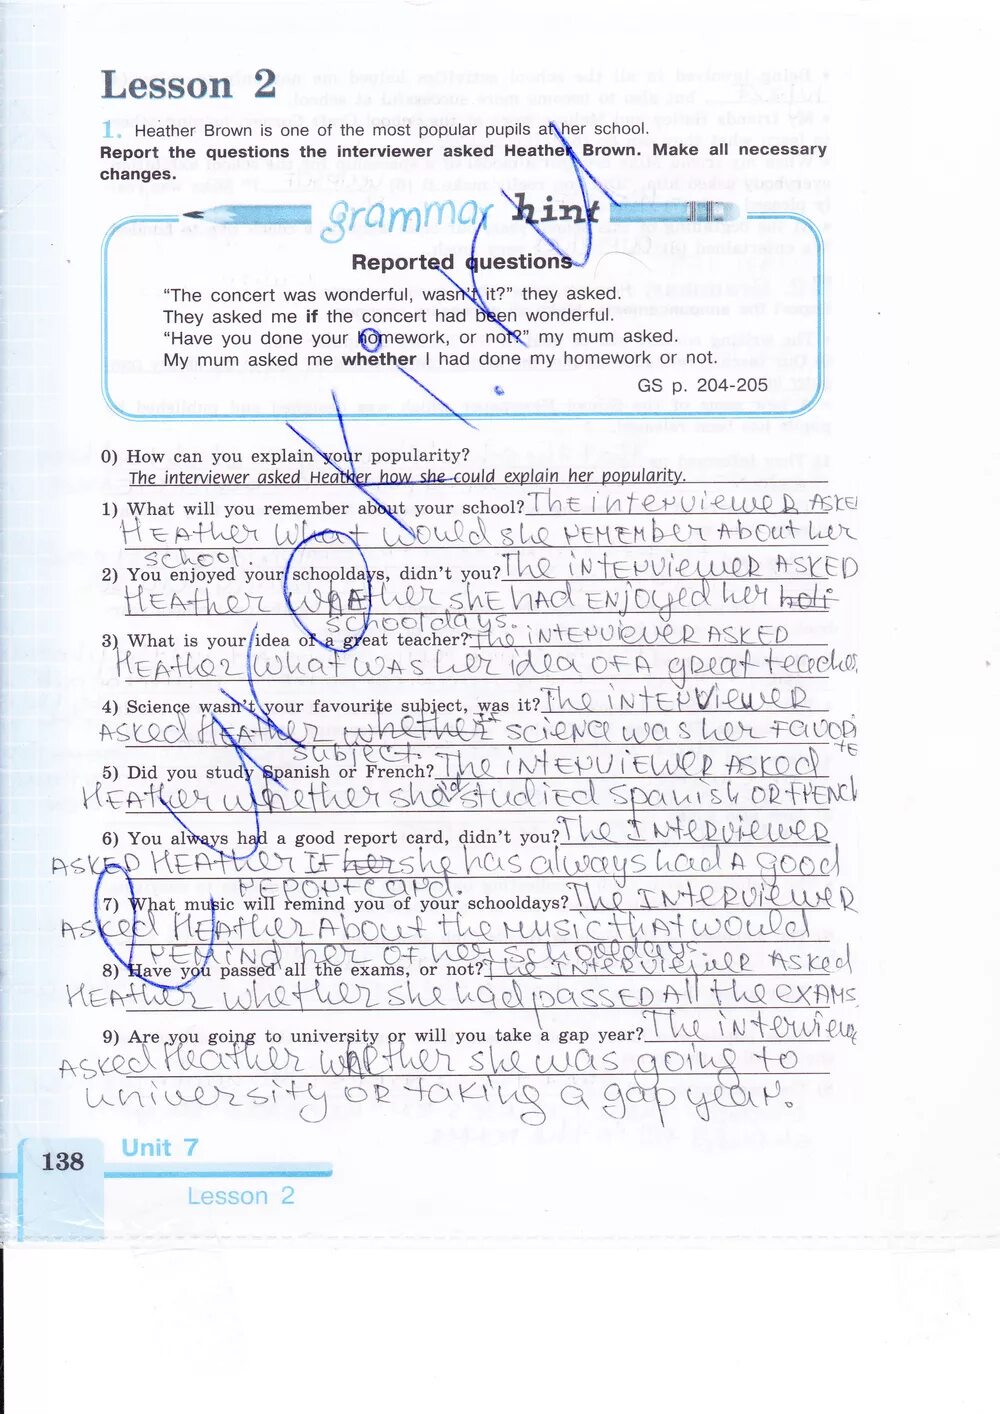 Lesson 2
1. Heather Brown is one of the most popular pupils at her school.
Report the questions the interviewer asked Heather Brown. Make all necessary
changes.
grammar hint
Reported questions
“The concert was wonderful, wasn't it?” they asked.
They asked me if the concert had been wonderful.
“Have you done your homework, or not?” my mum asked.
My mum asked me whether I had done my homework or not.
GS p. 204-205
0) How can you explain your popularity?
The interviewer asked Heather how she could explain her popularity.
1) What will you remember about your school? The interviewer asked
Heather what would she remember about her
school.
2) You enjoyed your schooldays, didn't you? The interviewer asked
Heather whether she had enjoyed her
schooldays.
3) What is your idea of a great teacher? The interviewer asked
Heather what was her idea of a great teacher
4) Science wasn't your favourite subject, was it? The interviewer
asked Heather whether if science was her favori
te
subject.
5) Did you study Spanish or French? The interviewer asked
Heather whether she studied Spanish or French
6) You always had a good report card, didn't you? The interviewer
asked Heather if her she has always had a good
report card.
7) What music will remind you of your schooldays? The interviewer
asked Heather about the music that would
remind her of her schooldays
8) Have you passed all the exams, or not? The interviewer asked
Heather whether she had passed all the exams
9) Are you going to university or will you take a gap year? The interview
asked Heather whether she was going to
university or taking a gap year.
138
Unit 7
Lesson 2